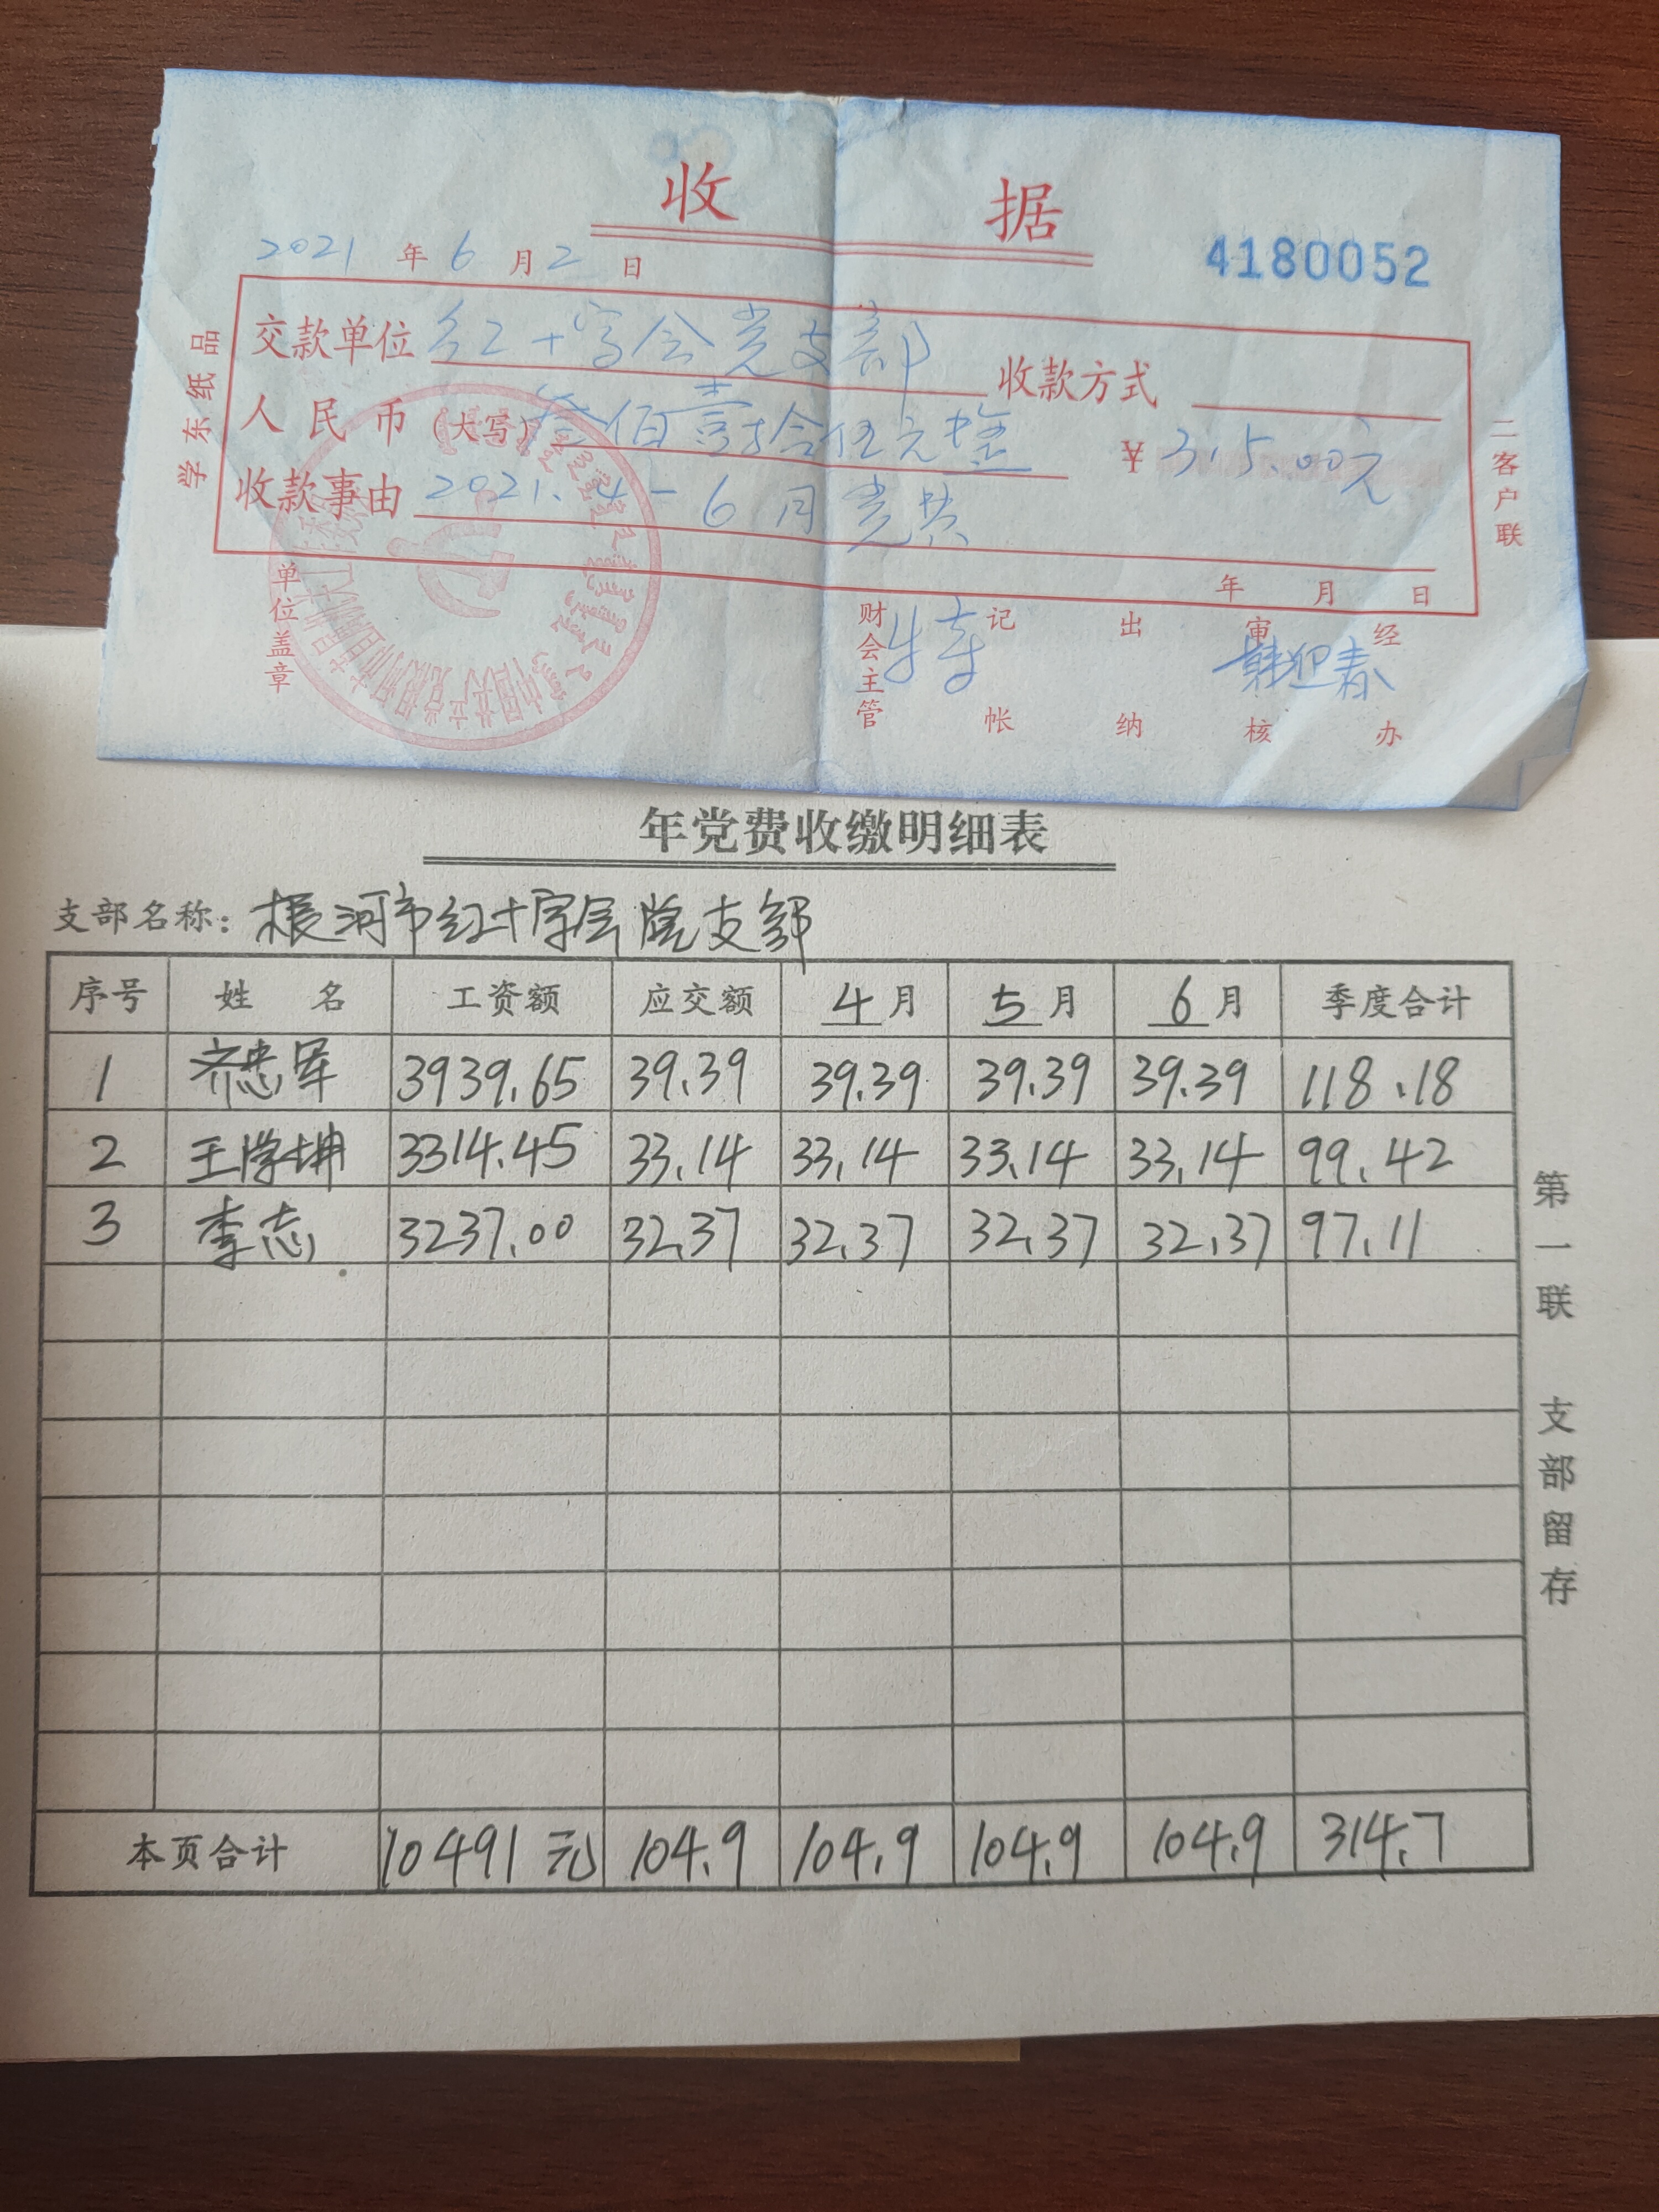 收 据
2021 年 6 月 2 日
4180052
交款单位 红十字会党支部 收款方式
人民币(大写) 叁佰壹拾伍元整 ¥ 315.00元
收款事由 2021.4-6月党费
年 月 日
学东纸品
二客户联
单位盖章
财会主管 记帐 出纳 审核 经办
韩迎春
年党费收缴明细表
支部名称: 根河市红十字会党支部
序号 姓名 工资额 应交额 4月 5月 6月 季度合计
1 齐忠军 3939.65 39.39 39.39 39.39 39.39 118.18
2 王学坤 3314.45 33.14 33.14 33.14 33.14 99.42
3 李志 3237.00 32.37 32.37 32.37 32.37 97.11
本页合计 10491元 104.9 104.9 104.9 104.9 314.7
第一联 支部留存